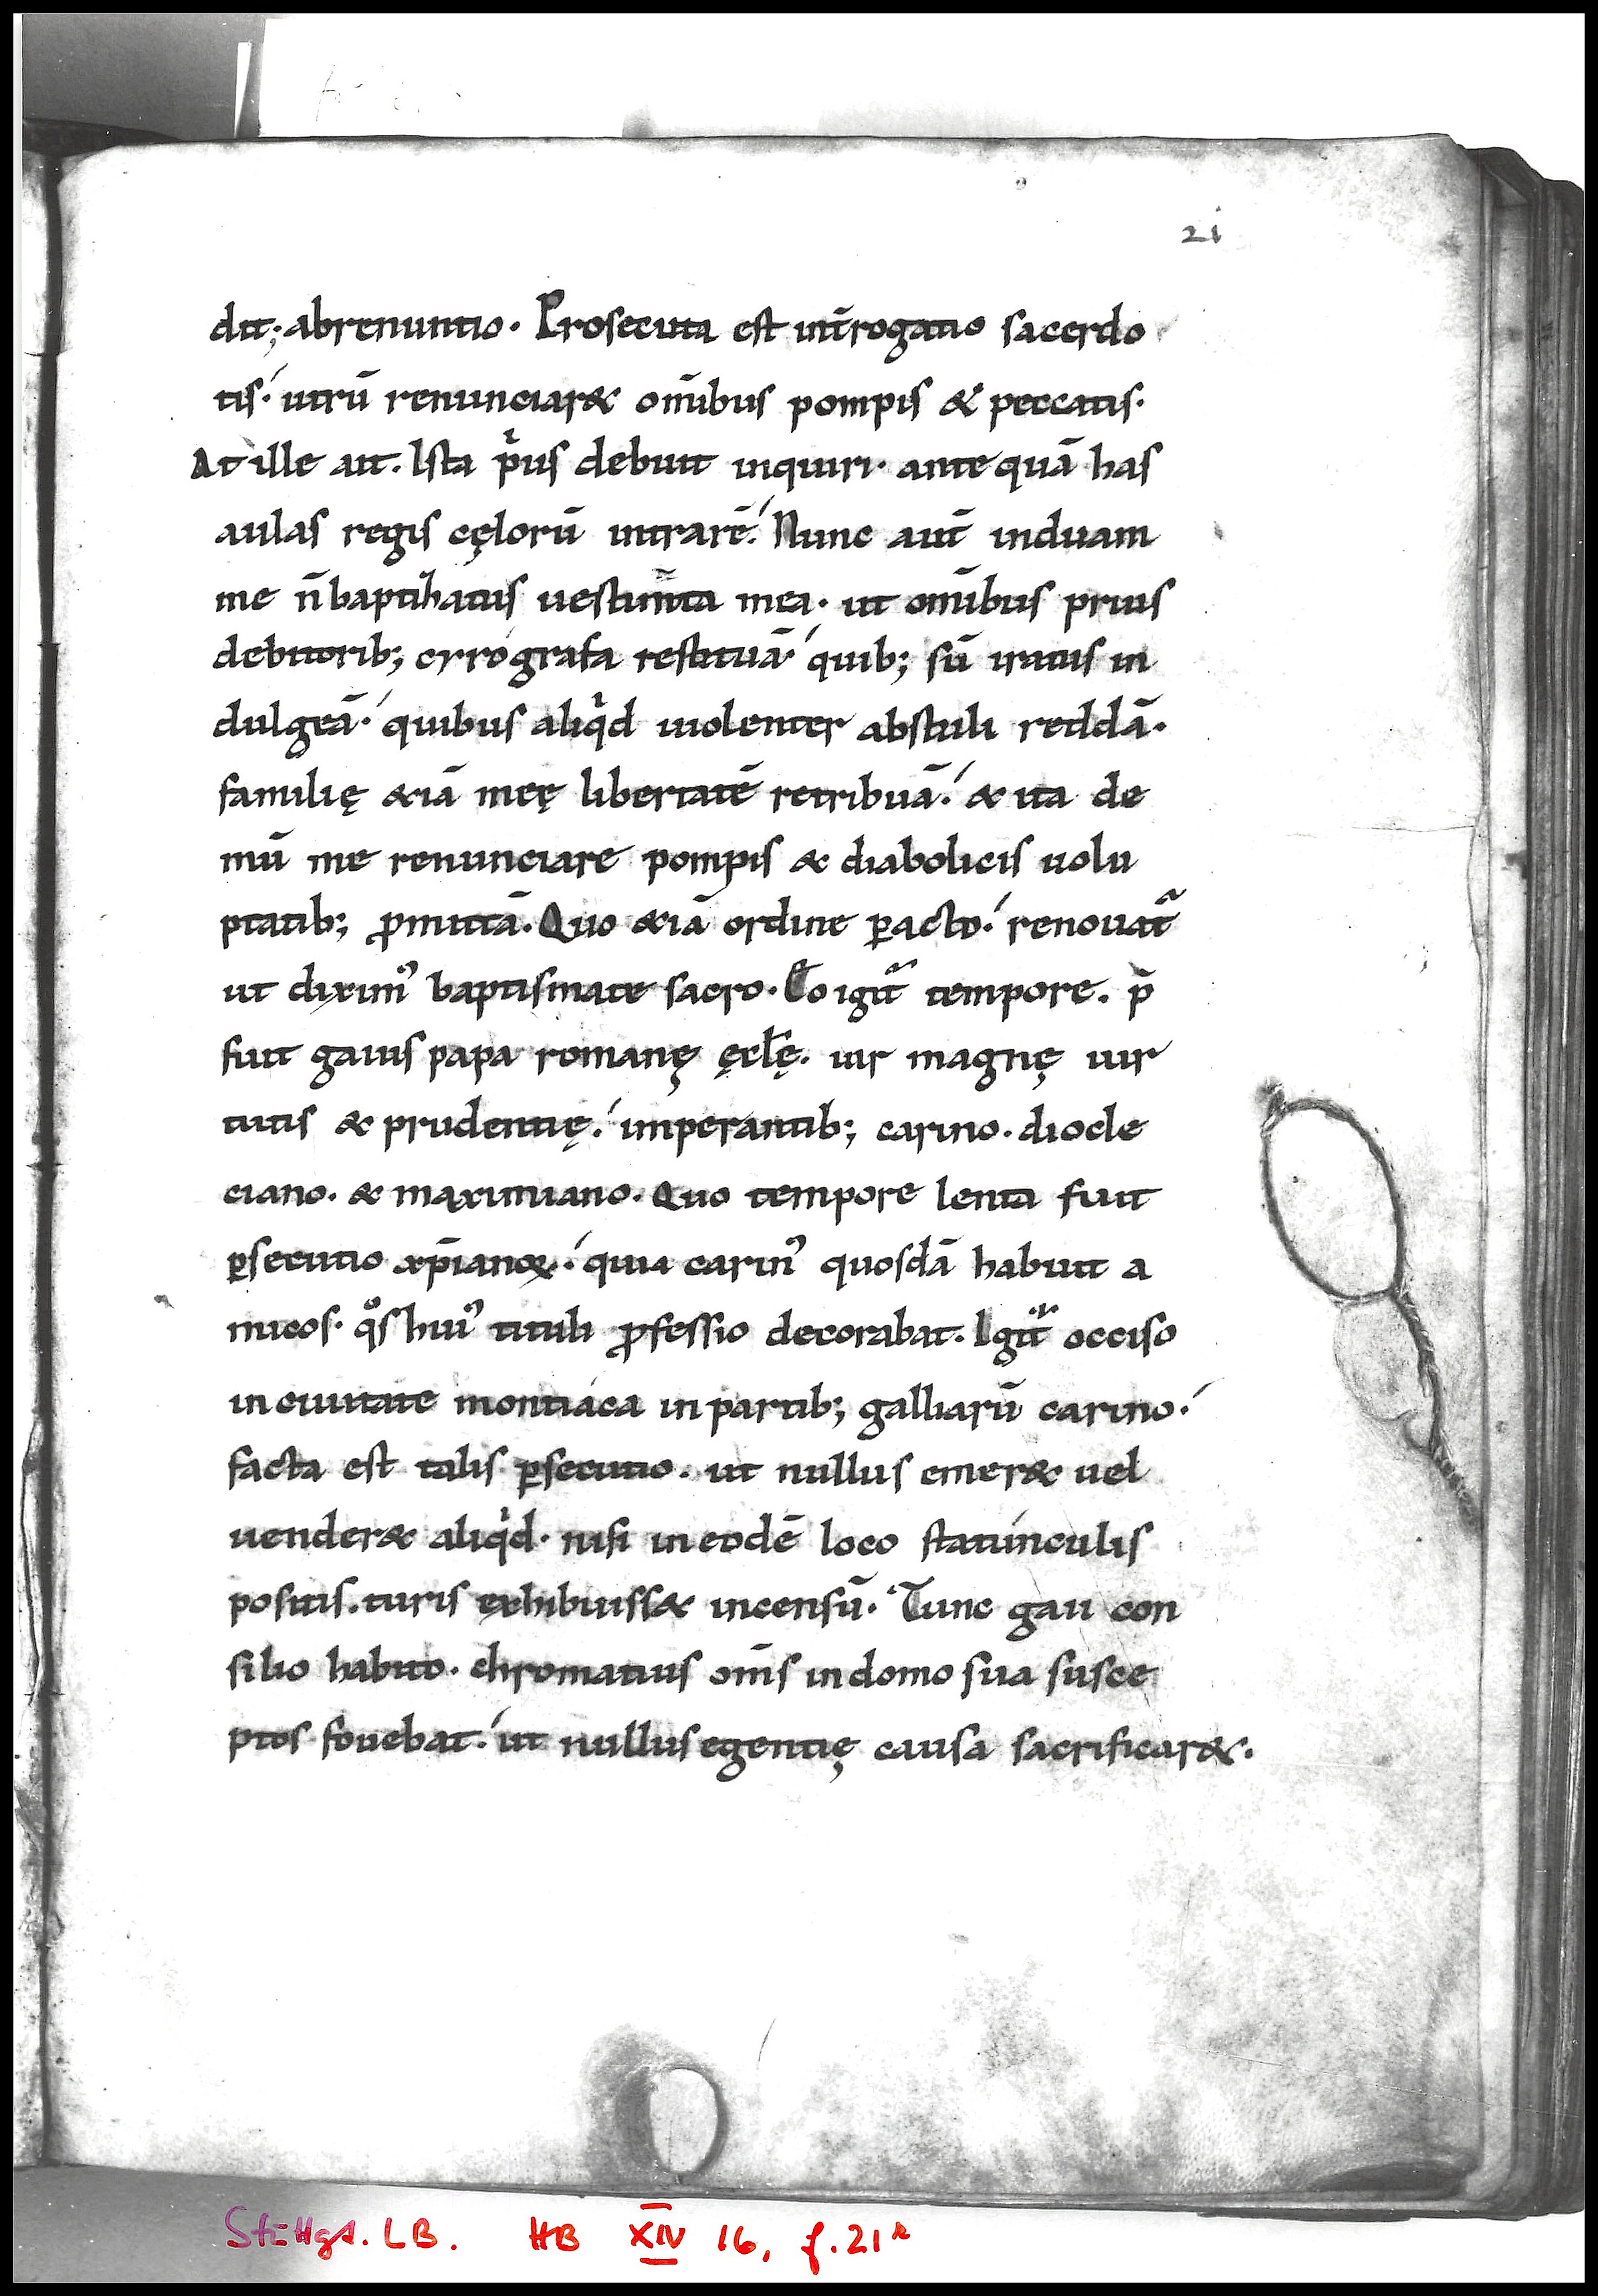 21
dit; abrenuntio. Prosecuta est int̄rogatio sacerdo
tis. utrū renunciar& om̄ibus pompis & peccatis.
At ille ait. Ista p̍us debuit inquiri. ante quā has
aulas regis cęlorū intrarē. Nunc aut̄ induam
me n̄ baptizatus uestim̄ta mea. ut om̄ibus prius
debitorib; cyrografa restituā. quib; sū iratus in
dulgeā. quibus aliq̍d uiolenter abstuli reddā.
familię &iā meę libertatē retribuā. & ita de
mū me renunciare pompis & diabolicis uolu
ptatib; ꝓmittā. Quo &iā ordine ꝑacto. renouat᷑
ut dixim᾽ baptismate sacro. Eo igit᷑ tempore. p̄
fuit gaius papa romanę ęcl̄ę. uir magnę uir
tutis & prudentię. imperantib; carino. diocle
ciano. & maximiano. Quo tempore lenta fuit
ꝑsecutio xp̄ianoꝝ. quia carin᾽ quosdā habuit a
micos. qͦs hui᾽ tituli ꝓfessio decorabat. Igit᷑ occiso
in ciuitate montiáca in partib; galliarū carino.
facta est talis ꝑsecutio. ut nullus emer& uel
uender& aliq̍d. nisi in eodē loco statúnculis
positis. turis exhibuiss& incensū. Tunc gaii con
silio habito. chromatius om̄s in domo sua susce
ptos fouebat. ut nullus egentię causa sacrificar&.
Stuttgt. LB. HB XIV 16, f. 21r